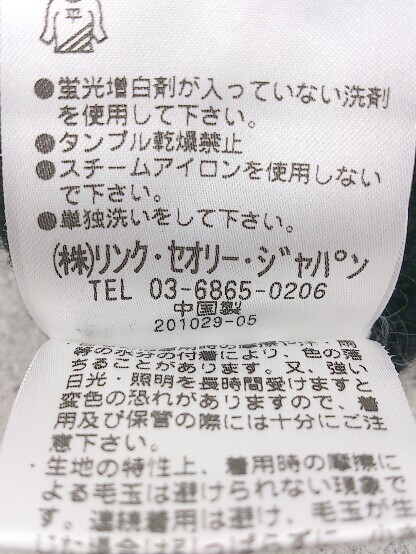 平
●蛍光増白剤が入っていない洗剤
を使用して下さい。
●タンブル乾燥禁止
●スチームアイロンを使用しない
で下さい。
●単独洗いをして下さい。
(株)リンク・セオリー・ジャパン
TEL 03-6865-0206
中国製
201029-05
等の水分の付着により、色の落
ちることがあります。又、強い
日光・照明を長時間受けますと
変色の恐れがありますので、着
用及び保管の際には十分にご注
意下さい。
・生地の特性上、着用時の摩擦に
よる毛玉は避けられない現象で
す。連続着用は避け、毛玉が生
じた場合は引っぱらずに